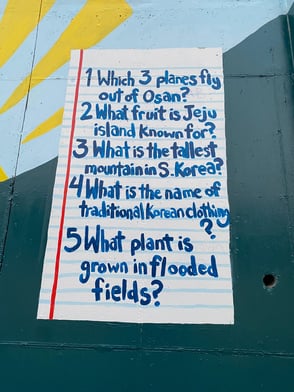 1 Which 3 planes fly
out of Osan?
2 What fruit is Jeju
island known for?
3 What is the tallest
mountain in S. Korea?
4 What is the name of
traditional Korean clothing
?
5 What plant is
grown in flooded
fields?